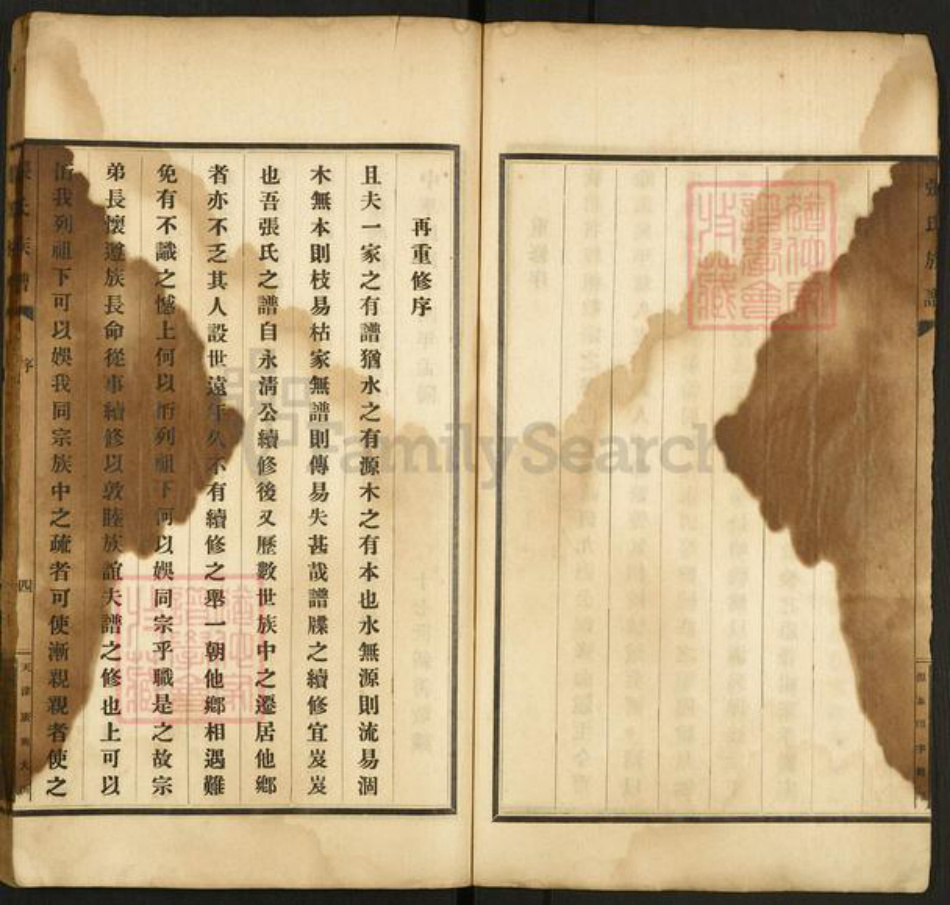 再重修序
且夫一家之有譜猶水之有源木之有本也水無源則流易涸
木無本則枝易枯家無譜則傳易失甚哉譜牒之續修宜岌岌
也吾張氏之譜自永清公續修後又歷數世族中之遷居他鄉
者亦不乏其人設世遠年久不有續修之舉一朝他鄉相遇難
免有不識之憾上何以慰列祖下何以娛同宗乎職是之故宗
弟長懷遵族長命從事續修以敦睦族誼夫譜之修也上可以
我列祖下可以娛我同宗族中之疏者可使漸親親者使之
張氏族譜
序
四
天津
張氏族譜
FamilySearch